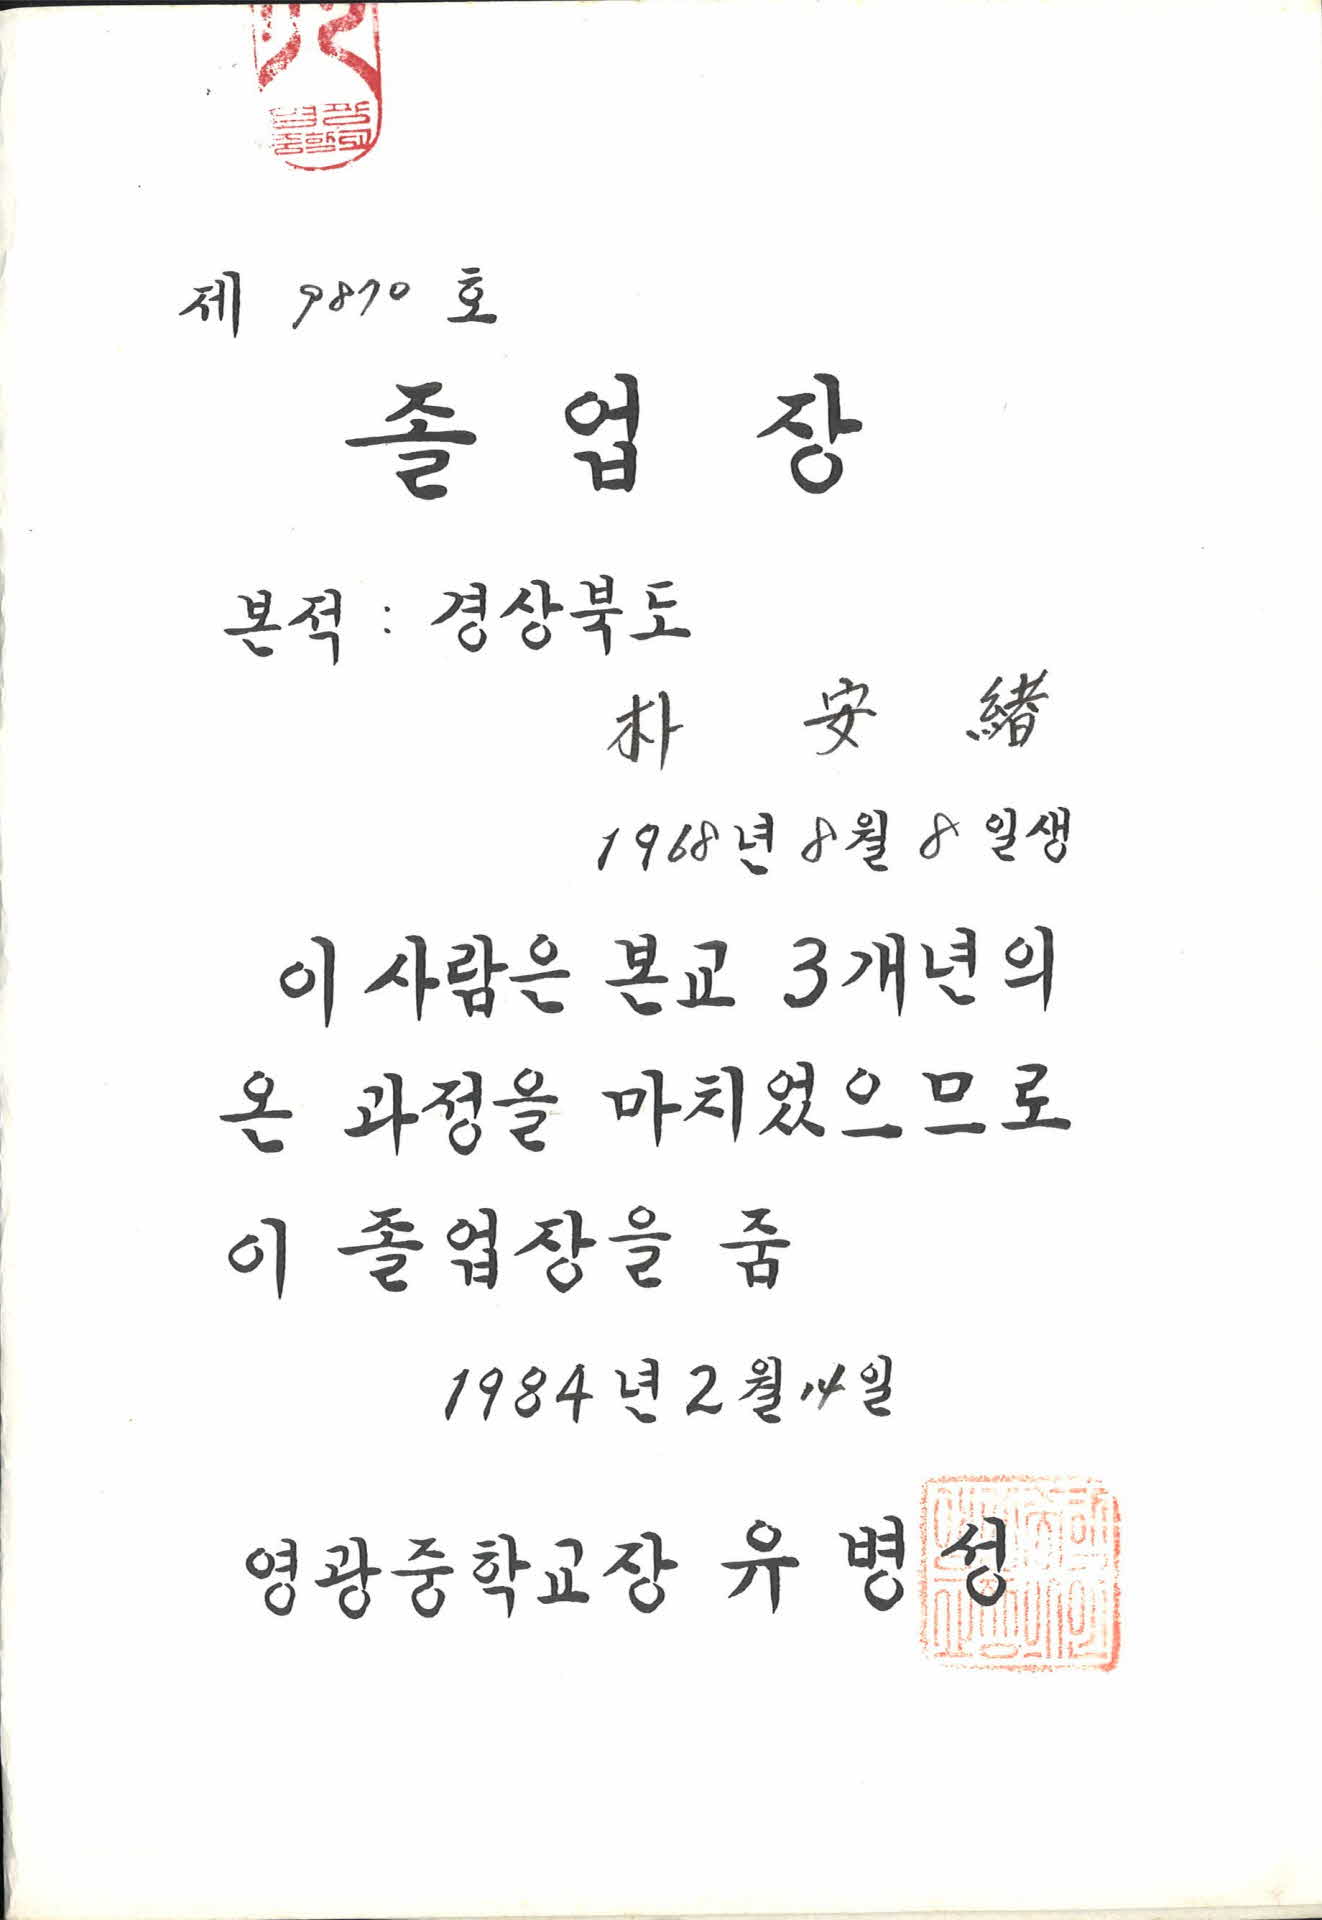 제 9870 호
졸업장
본적 : 경상북도
朴 安 緖
1968년 8월 8일생
이 사람은 본교 3개년의
온 과정을 마치었으므로
이 졸업장을 줌
1984년 2월 14일
영광중학교장 유병성